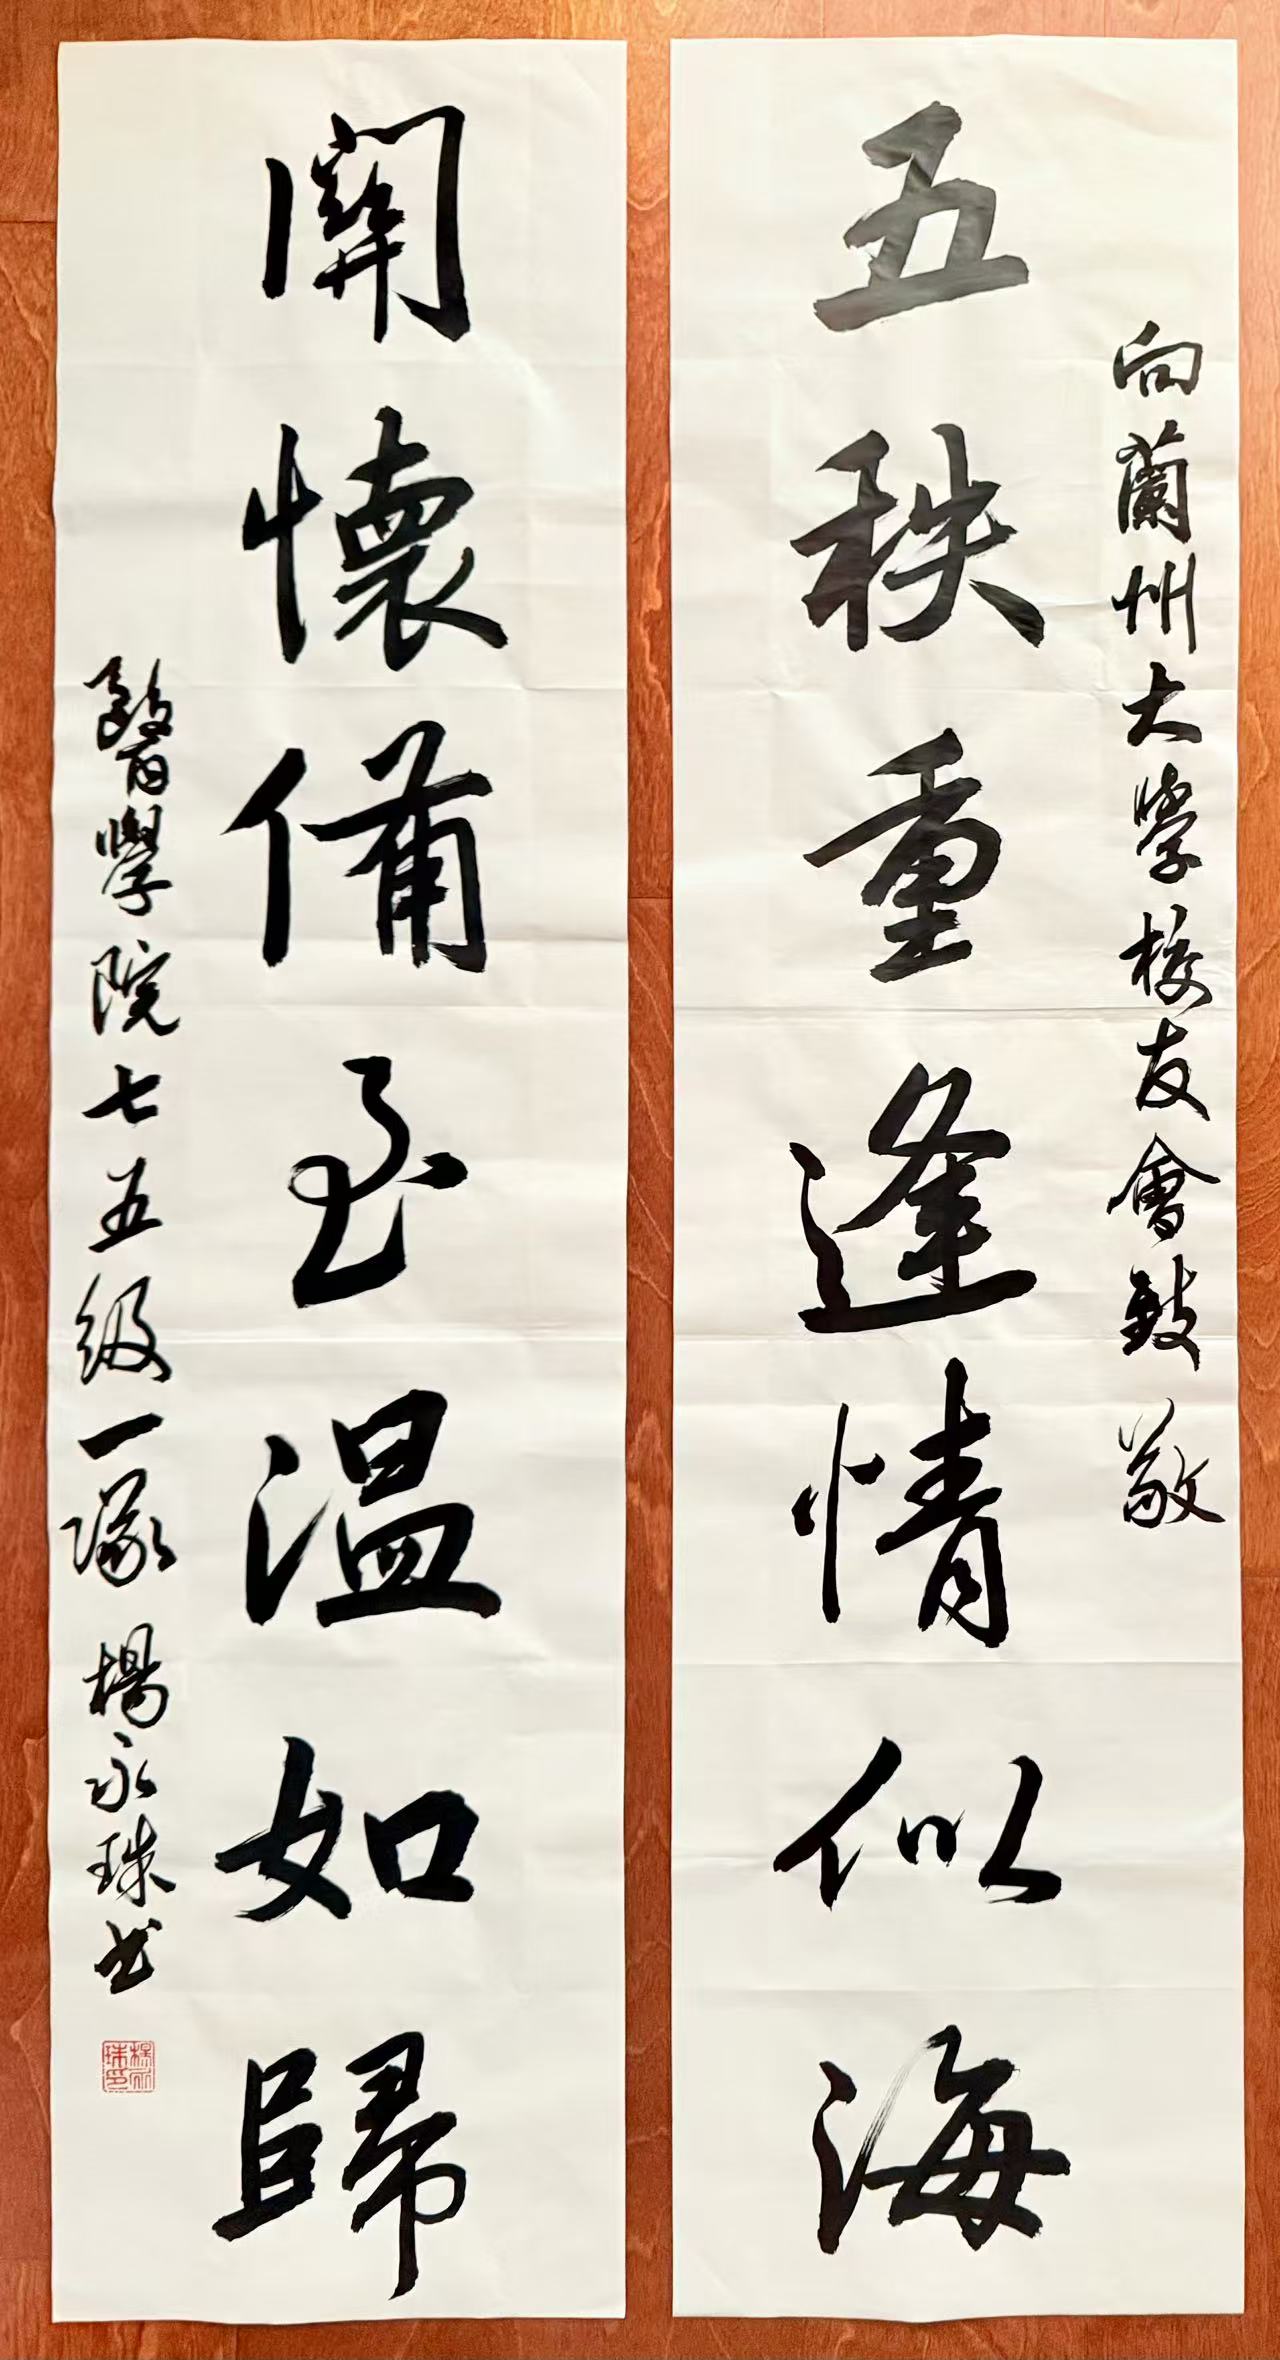 向蘭州大學校友會致敬
五秩重逢情似海
關懷備至溫如歸
醫學院七五級一隊 楊永珠书
楊永珠印